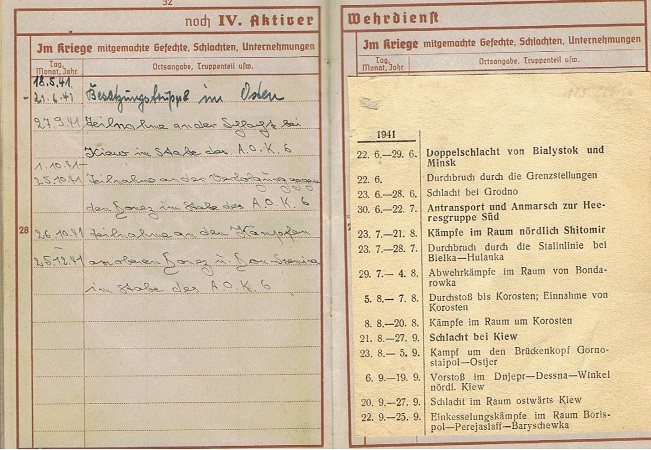 32
noch IV. Aktiver
Im Kriege mitgemachte Gefechte, Schlachten, Unternehmungen
Tag, Monat, Jahr
Ortsangabe, Truppenteil usw.
18.5.41
- 21.6.41 Besatzungstruppe im Osten
27.9.41 Teilnahme an der Schlacht bei
Kiew im Stabe des A.O.K. 6
1.10.41 -
25.10.41 Teilnahme an der Verfolgung gegen
den Donez im Stabe des A.O.K. 6
28
26.10.41 Teilnahme an den Kämpfen
-
25.12.41 am oberen Donez u.
im Stabe des A.O.K. 6
Wehrdienst
Im Kriege mitgemachte Gefechte, Schlachten, Unternehmungen
Tag, Monat, Jahr
Ortsangabe, Truppenteil usw.
1941
22. 6.—29. 6. Doppelschlacht von Bialystok und
Minsk
22. 6. Durchbruch durch die Grenzstellungen
23. 6.—28. 6. Schlacht bei Grodno
30. 6.—22. 7. Antransport und Anmarsch zur Hee-
resgruppe Süd
23. 7.—21. 8. Kämpfe im Raum nördlich Shitomir
23. 7.—28. 7. Durchbruch durch die Stalinlinie bei
Bielka—Hulanka
29. 7.— 4. 8. Abwehrkämpfe im Raum von Bonda-
rowka
5. 8.— 7. 8. Durchstoß bis Korosten; Einnahme von
Korosten
8. 8.—20. 8. Kämpfe im Raum um Korosten
21. 8.—27. 9. Schlacht bei Kiew
23. 8.— 5. 9. Kampf um den Brückenkopf Gorno-
staipol—Ostjer
6. 9.—19. 9. Vorstoß im Dnjepr—Dessna—Winkel
nördl. Kiew
20. 9.—27. 9. Schlacht im Raum ostwärts Kiew
22. 9.—25. 9. Einkesselungskämpfe im Raum Boris-
pol—Perejaslaff—Baryschewka